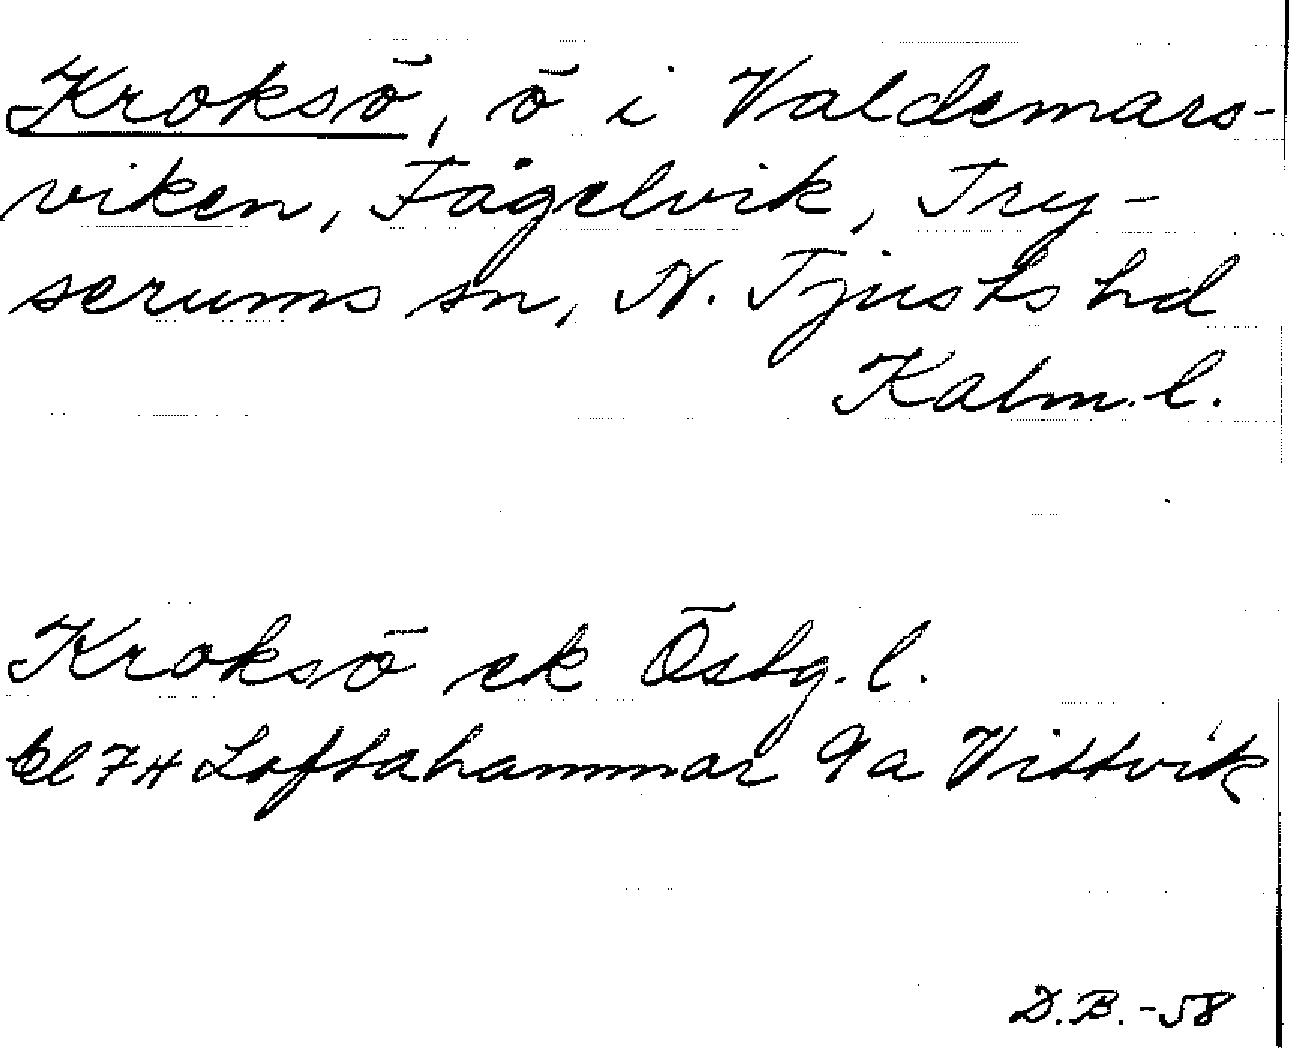 Kroksö, ö i Valdemars-
viken, Fågelvik, Try-
serums sn, N. Tjusts hd
Kalm. l.
Kroksö ek Östg. l.
bl 7H Loftahammar 9a Vittvik
D.B.-58